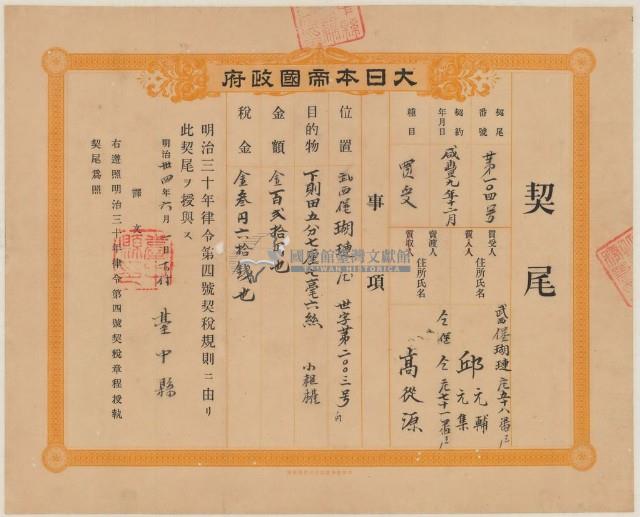 大日本帝國政府
契尾
契尾番號 第一〇四号
契約年月日 咸豐九年十二月
種目 買受
買受人
質入人
住所氏名
武西堡瑚璉庄五十八番戸
邱元輔
元集
賣渡人
質取人
住所氏名
仝堡仝庄七十一番戸
高從源
事項
位置 武西堡瑚璉庄 世字第二〇〇三号ノ
目的物 下則田五分七厘七毫六絲 小租權
金額 金百弐拾円也
稅金 金叁円六拾錢也
明治三十年律令第四號契稅規則ニ由リ
此契尾ヲ授與ス
明治卅四年六月一日
臺中縣
譯文
右遵照明治三十年律令第四號契稅章程授執
契尾爲照
國史館臺灣文獻館
TAIWAN HISTORICA